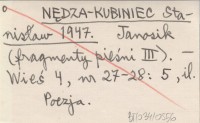 NĘDZA-KUBINIEC Sta-
nisław 1947. Janosik
(fragmenty pieśni III). —
Wieś 4, nr 27-28: 5, il.
Poezja.